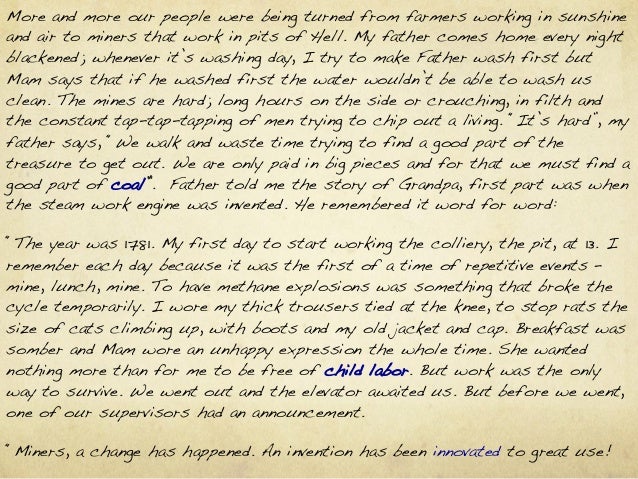 More and more our people were being turned from farmers working in sunshine
and air to miners that work in pits of Hell. My father comes home every night
blackened; whenever it's washing day, I try to make Father wash first but
Mam says that if he washed first the water wouldn't be able to wash us
clean. The mines are hard; long hours on the side or crouching, in filth and
the constant tap-tap-tapping of men trying to chip out a living." It's hard", my
father says," We walk and waste time trying to find a good part of the
treasure to get out. We are only paid in big pieces and for that we must find a
good part of coal". Father told me the story of Grandpa, first part was when
the steam work engine was invented. He remembered it word for word:

" The year was 1781. My first day to start working the colliery, the pit, at 13. I
remember each day because it was the first of a time of repetitive events -
mine, lunch, mine. To have methane explosions was something that broke the
cycle temporarily. I wore my thick trousers tied at the knee, to stop rats the
size of cats climbing up, with boots and my old jacket and cap. Breakfast was
somber and Mam wore an unhappy expression the whole time. She wanted
nothing more than for me to be free of child labor. But work was the only
way to survive. We went out and the elevator awaited us. But before we went,
one of our supervisors had an announcement.

" Miners, a change has happened. An invention has been innovated to great use!